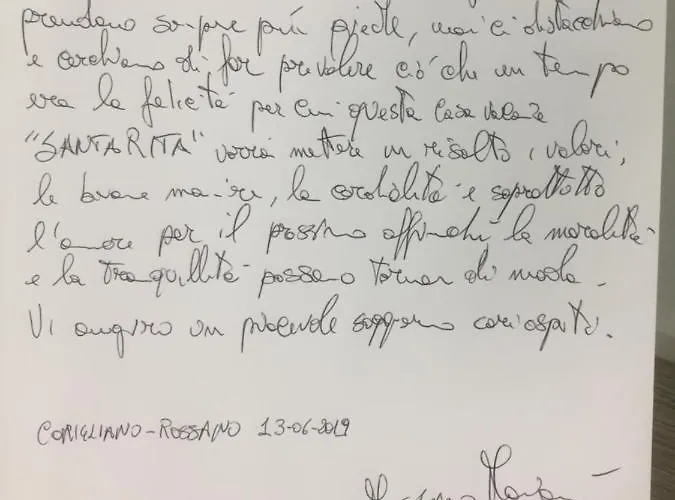 prendono sempre più piede, noi ci ostacoliamo
e cerchiamo di far prevalere ciò che un tempo
era la felicità per cui questa casa vacanze
"SANTA RITA" vorrà mettere in risalto i valori,
le buone maniere, la cordialità e soprattutto
l'amore per il prossimo affinché la moralità
e la tranquillità possano tornar di moda.
Vi auguro un piacevole soggiorno cari ospiti.
CORIGLIANO-ROSSANO 13-06-2019